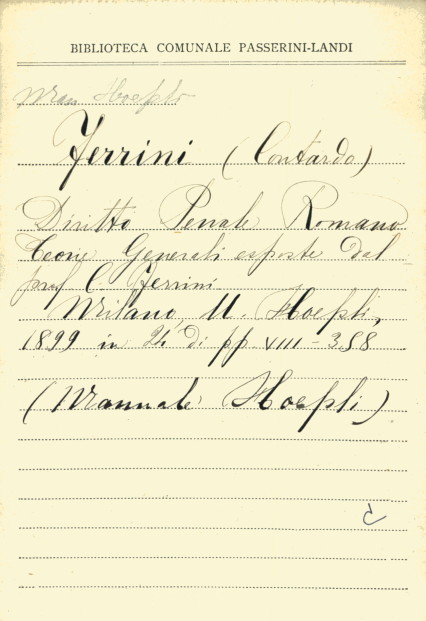 BIBLIOTECA COMUNALE PASSERINI-LANDI
Man Hoepli
Ferrini (Contardo)
Diritto Penale Romano
Teorie Generali esposte dal
prof C. Ferrini
Milano, U. Hoepli,
1899 in 24° di pp VIII-358
(Manuale Hoepli)